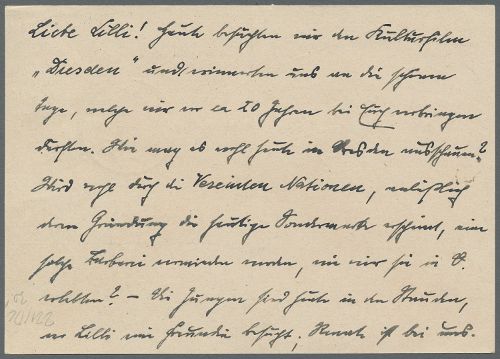 Liebe Lilli! Heute besuchten wir den Kulturfilm
„Dresden“ und erinnerten uns an die schönen
Tage, welche wir vor ca 20 Jahren bei Euch verbringen
durften. Wie mag es wohl heute in Dresden ausschauen?
Wird wohl durch die Vereinten Nationen, anläßlich
deren Gründung die heutige Sondermarke erscheint, eine
solche Barbarei vermieden werden, wie wir sie in D.
erlebten? – Die Jungen sind heute in den
wo Lilli eine Freundin besucht; Renate ist bei uns.